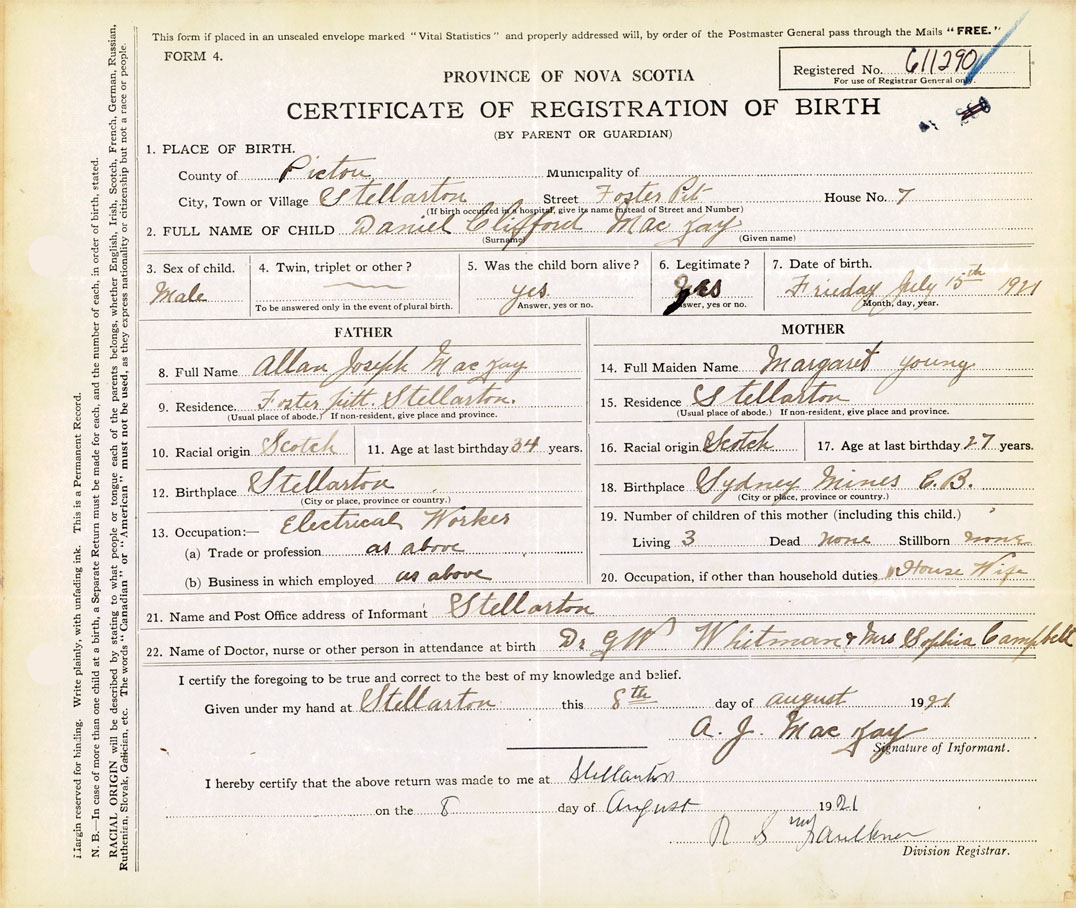 This form if placed in an unsealed envelope marked "Vital Statistics" and properly addressed will, by order of the Postmaster General pass through the Mails "FREE."
FORM 4.
Registered No. 611290
For use of Registrar General only.
PROVINCE OF NOVA SCOTIA
CERTIFICATE OF REGISTRATION OF BIRTH
(BY PARENT OR GUARDIAN)
1. PLACE OF BIRTH.
County of Pictou Municipality of
City, Town or Village Stellarton Street Foster Pit House No. 7
(If birth occurred in a hospital, give its name instead of Street and Number)
2. FULL NAME OF CHILD Daniel Clifford MacKay
(Surname) (Given name)
3. Sex of child. Male
4. Twin, triplet or other?
To be answered only in the event of plural birth.
5. Was the child born alive? yes
Answer, yes or no.
6. Legitimate? yes
Answer, yes or no.
7. Date of birth.
Friday July 15th 1921
Month, day, year.
FATHER
8. Full Name Allan Joseph MacKay
9. Residence. Foster pitt. Stellarton.
(Usual place of abode.) If non-resident, give place and province.
10. Racial origin Scotch 11. Age at last birthday 34 years.
12. Birthplace Stellarton
(City or place, province or country.)
13. Occupation:— Electrical Worker
(a) Trade or profession as above
(b) Business in which employed as above
MOTHER
14. Full Maiden Name Margaret young
15. Residence Stellarton
(Usual place of abode.) If non-resident, give place and province.
16. Racial origin Scotch 17. Age at last birthday 27 years.
18. Birthplace Sydney Mines C.B.
(City or place, province or country.)
19. Number of children of this mother (including this child.)
Living 3 Dead none Stillborn none
20. Occupation, if other than household duties House Wife
21. Name and Post Office address of Informant Stellarton
22. Name of Doctor, nurse or other person in attendance at birth Dr G W Whitman & Mrs Sophia Campbell
I certify the foregoing to be true and correct to the best of my knowledge and belief.
Given under my hand at Stellarton this 8th day of august 1921
A. J. MacKay
Signature of Informant.
I hereby certify that the above return was made to me at Stellarton
on the 8 day of August 1921
R S Faulkner
Division Registrar.
Margin reserved for binding. Write plainly, with unfading ink. This is a Permanent Record.
N. B.—In case of more than one child at a birth, a Separate Return must be made for each, and the number of each, in order of birth, stated.
RACIAL ORIGIN will be described by stating to what people or tongue each of the parents belongs, whether English, Irish, Scotch, French, German, Russian,
Ruthenian, Slovak, Galician, etc. The words "Canadian" or "American" must not be used, as they express nationality or citizenship but not a race or people.